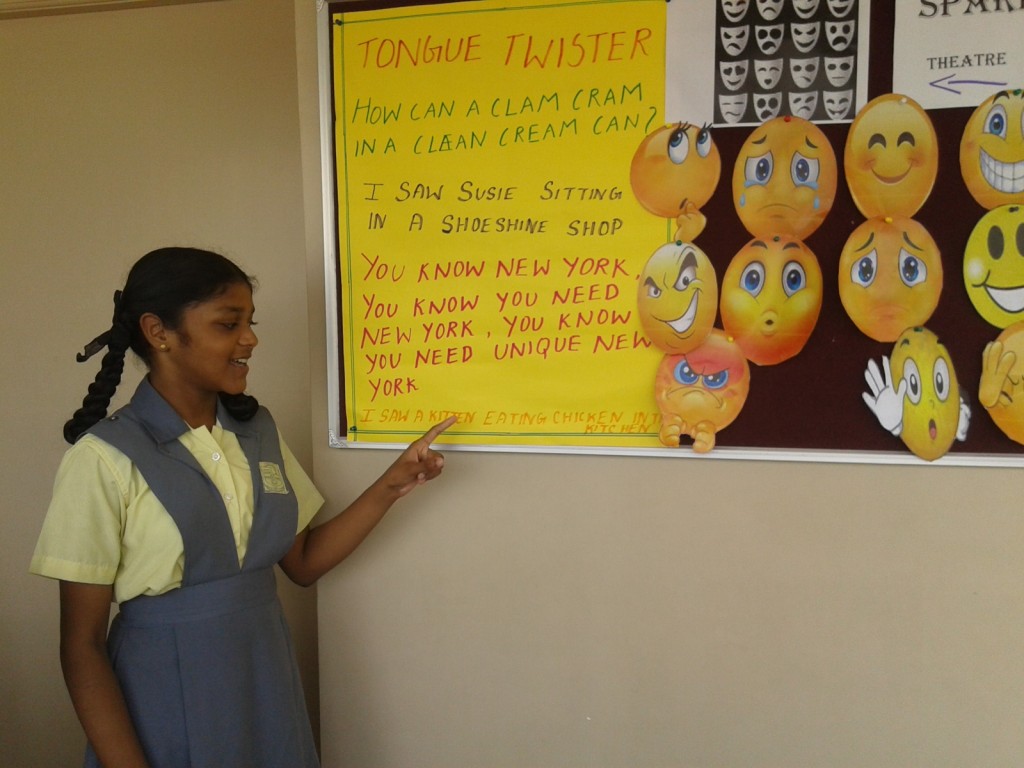 TONGUE TWISTER
HOW CAN A CLAM CRAM
IN A CLEAN CREAM CAN?
I SAW SUSIE SITTING
IN A SHOESHINE SHOP
YOU KNOW NEW YORK,
YOU KNOW YOU NEED
NEW YORK, YOU KNOW
YOU NEED UNIQUE NEW
YORK
I SAW A KITTEN EATING CHICKEN IN
KITCHEN
THEATRE